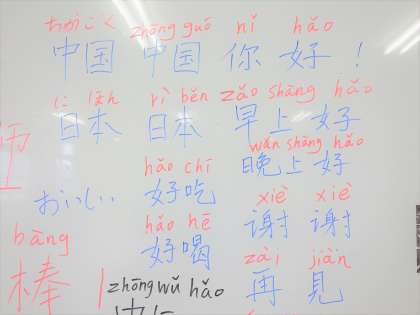 ちゅうごく zhōng guó nǐ hǎo
中国 中国 你 好 !
rì běn zǎo shàng hǎo
日本 日本 早上好
wǎn shàng hǎo
hǎo chī 晚上好
おいしい 好吃 xiè xiè
hǎo hē 谢 谢
bàng 好喝 zài jiàn
棒 zhōng wǔ hǎo 再 見